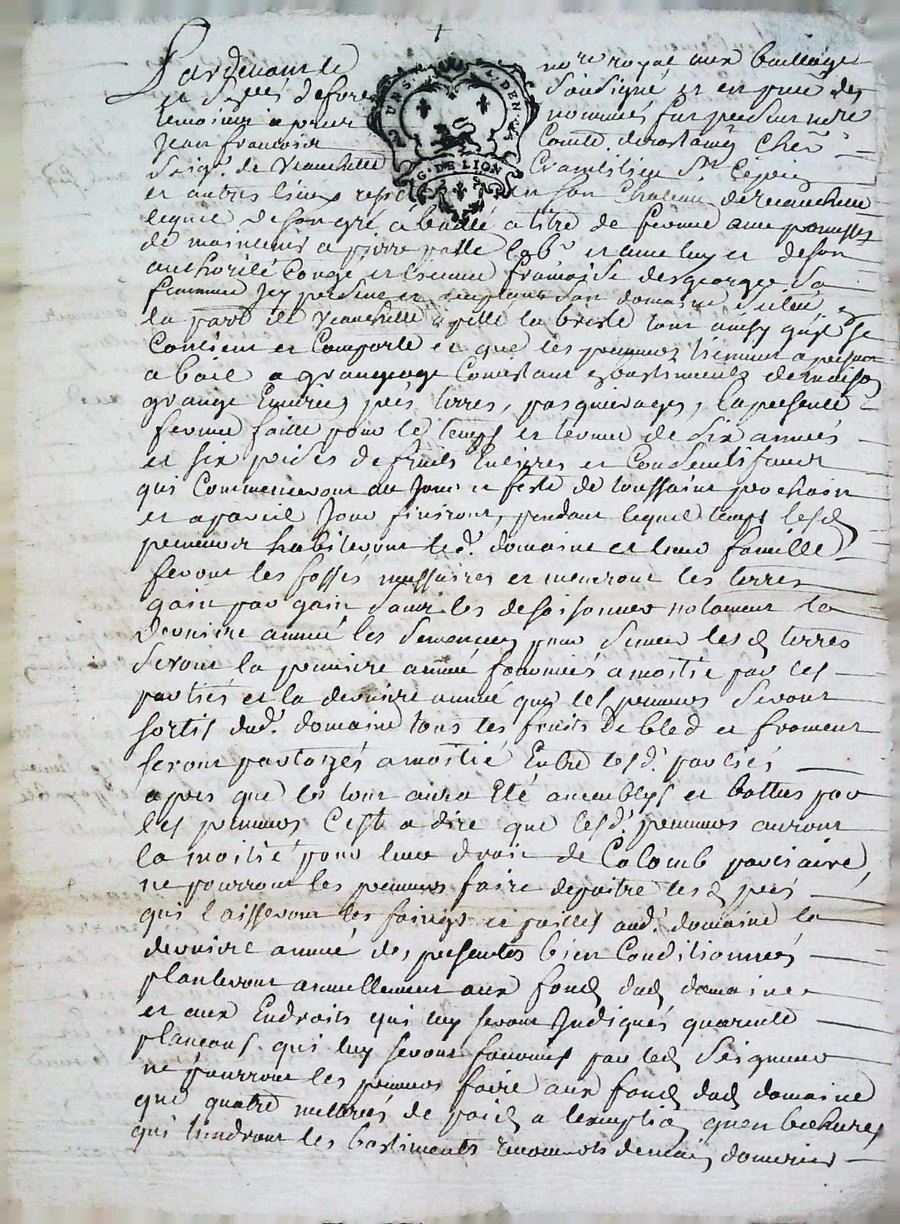 Pardevant le nore royal aux bailliage
et Sndés de forez Soussigné et en pnce des
temoins apres nommés fut present mre
Jean francois Comte de rostaing Cher
Seigr. de Veauchette Craintilieu St Cepries
UN S. 4. DEN.
G. DE LION
et autres lieux en son Chateau de veauchette
lequel de son gré a baillé a titre de ferme avec promesse
de maintenir a pierre labr et avec luy et de son
authorité Congé et licence francoise desgeorges sa
femme Icy presente et acceptant Son domaine Situé
la parr de Veauchette apellé la tout ainsy quil se
Contient et Comporte et que les preneurs tiennent a present
a bail a grangeage Consistant en bastiments de maison
grange Ecuries prés terres, pasquerages, la presente
ferme faitte pour le temps et terme de Six années
et six prises de fruits Entieres et Consecutifs
qui Commenceront au Jour et feste de toussaint prochain
et a pareil Jour finiront, pendant lequel temps lesd
preneurs habiteront led. domaine et leur famille
feront les fossés nessaires et meneront les terres
gain par gain Sans les desaisonner notament la
derniere année les Semences pour Semer lesd terres
Seront la premiere année fournies a moitié par les
parties et la derniere année que les preneurs Seront
Sortis dud. domaine tous les fruits de bled et froment
Seront partagés a moitié Entre lesd. parties
apres que le tout aura Eté assemblés et battus par
les preneurs C'est a dire que lesd. preneurs auront
la moitié pour leur droit de Colomb parciaire,
ne pourront les preneurs faire depaitre lesd prés
qui laisseront les foings et pailles aud. domaine la
derniere année des presentes bien Conditionnées
planteront annuellement aux fonds dud domaine
et aux Endroits qui luy seront Indiqués quarente
plançons qui luy seront fournis par led Seigneur
ne pourront les preneurs faire aux fonds dud domaine
que quatre de a lexception quen
qui tiendront les bastiments